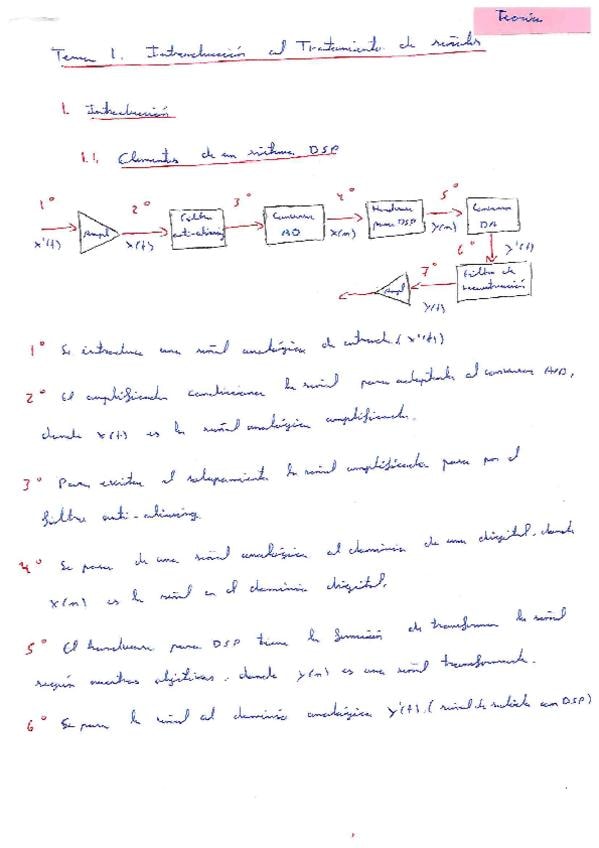 Teoría
Tema 1. Introducción al Tratamiento de señales
1. Introducción
1.1. Elementos de un sistema DSP
1º 2º 3º 4º 5º
x'(t) Ampl x(t) Filtro anti-aliasing Conversor AD x(n) Hardware para DSP y(n) Conversor DA
6º y'(t)
7º Filtro de reconstrucción
Ampl y(t)
1º Se introduce una señal analógica de entrada (x'(t))
2º El amplificador condiciona la señal para adaptarla al conversor A/D,
donde x(t) es la señal analógica amplificada.
3º Para evitar el solapamiento la señal amplificada pasa por el
filtro anti-aliasing.
4º Se pasa de una señal analógica al dominio de una digital, donde
x(n) es la señal en el dominio digital.
5º El hardware para DSP tiene la función de transformar la señal
según nuestros objetivos, donde y(n) es una señal transformada.
6º Se pasa la señal al dominio analógica y'(t). (señal de salida con DSP)